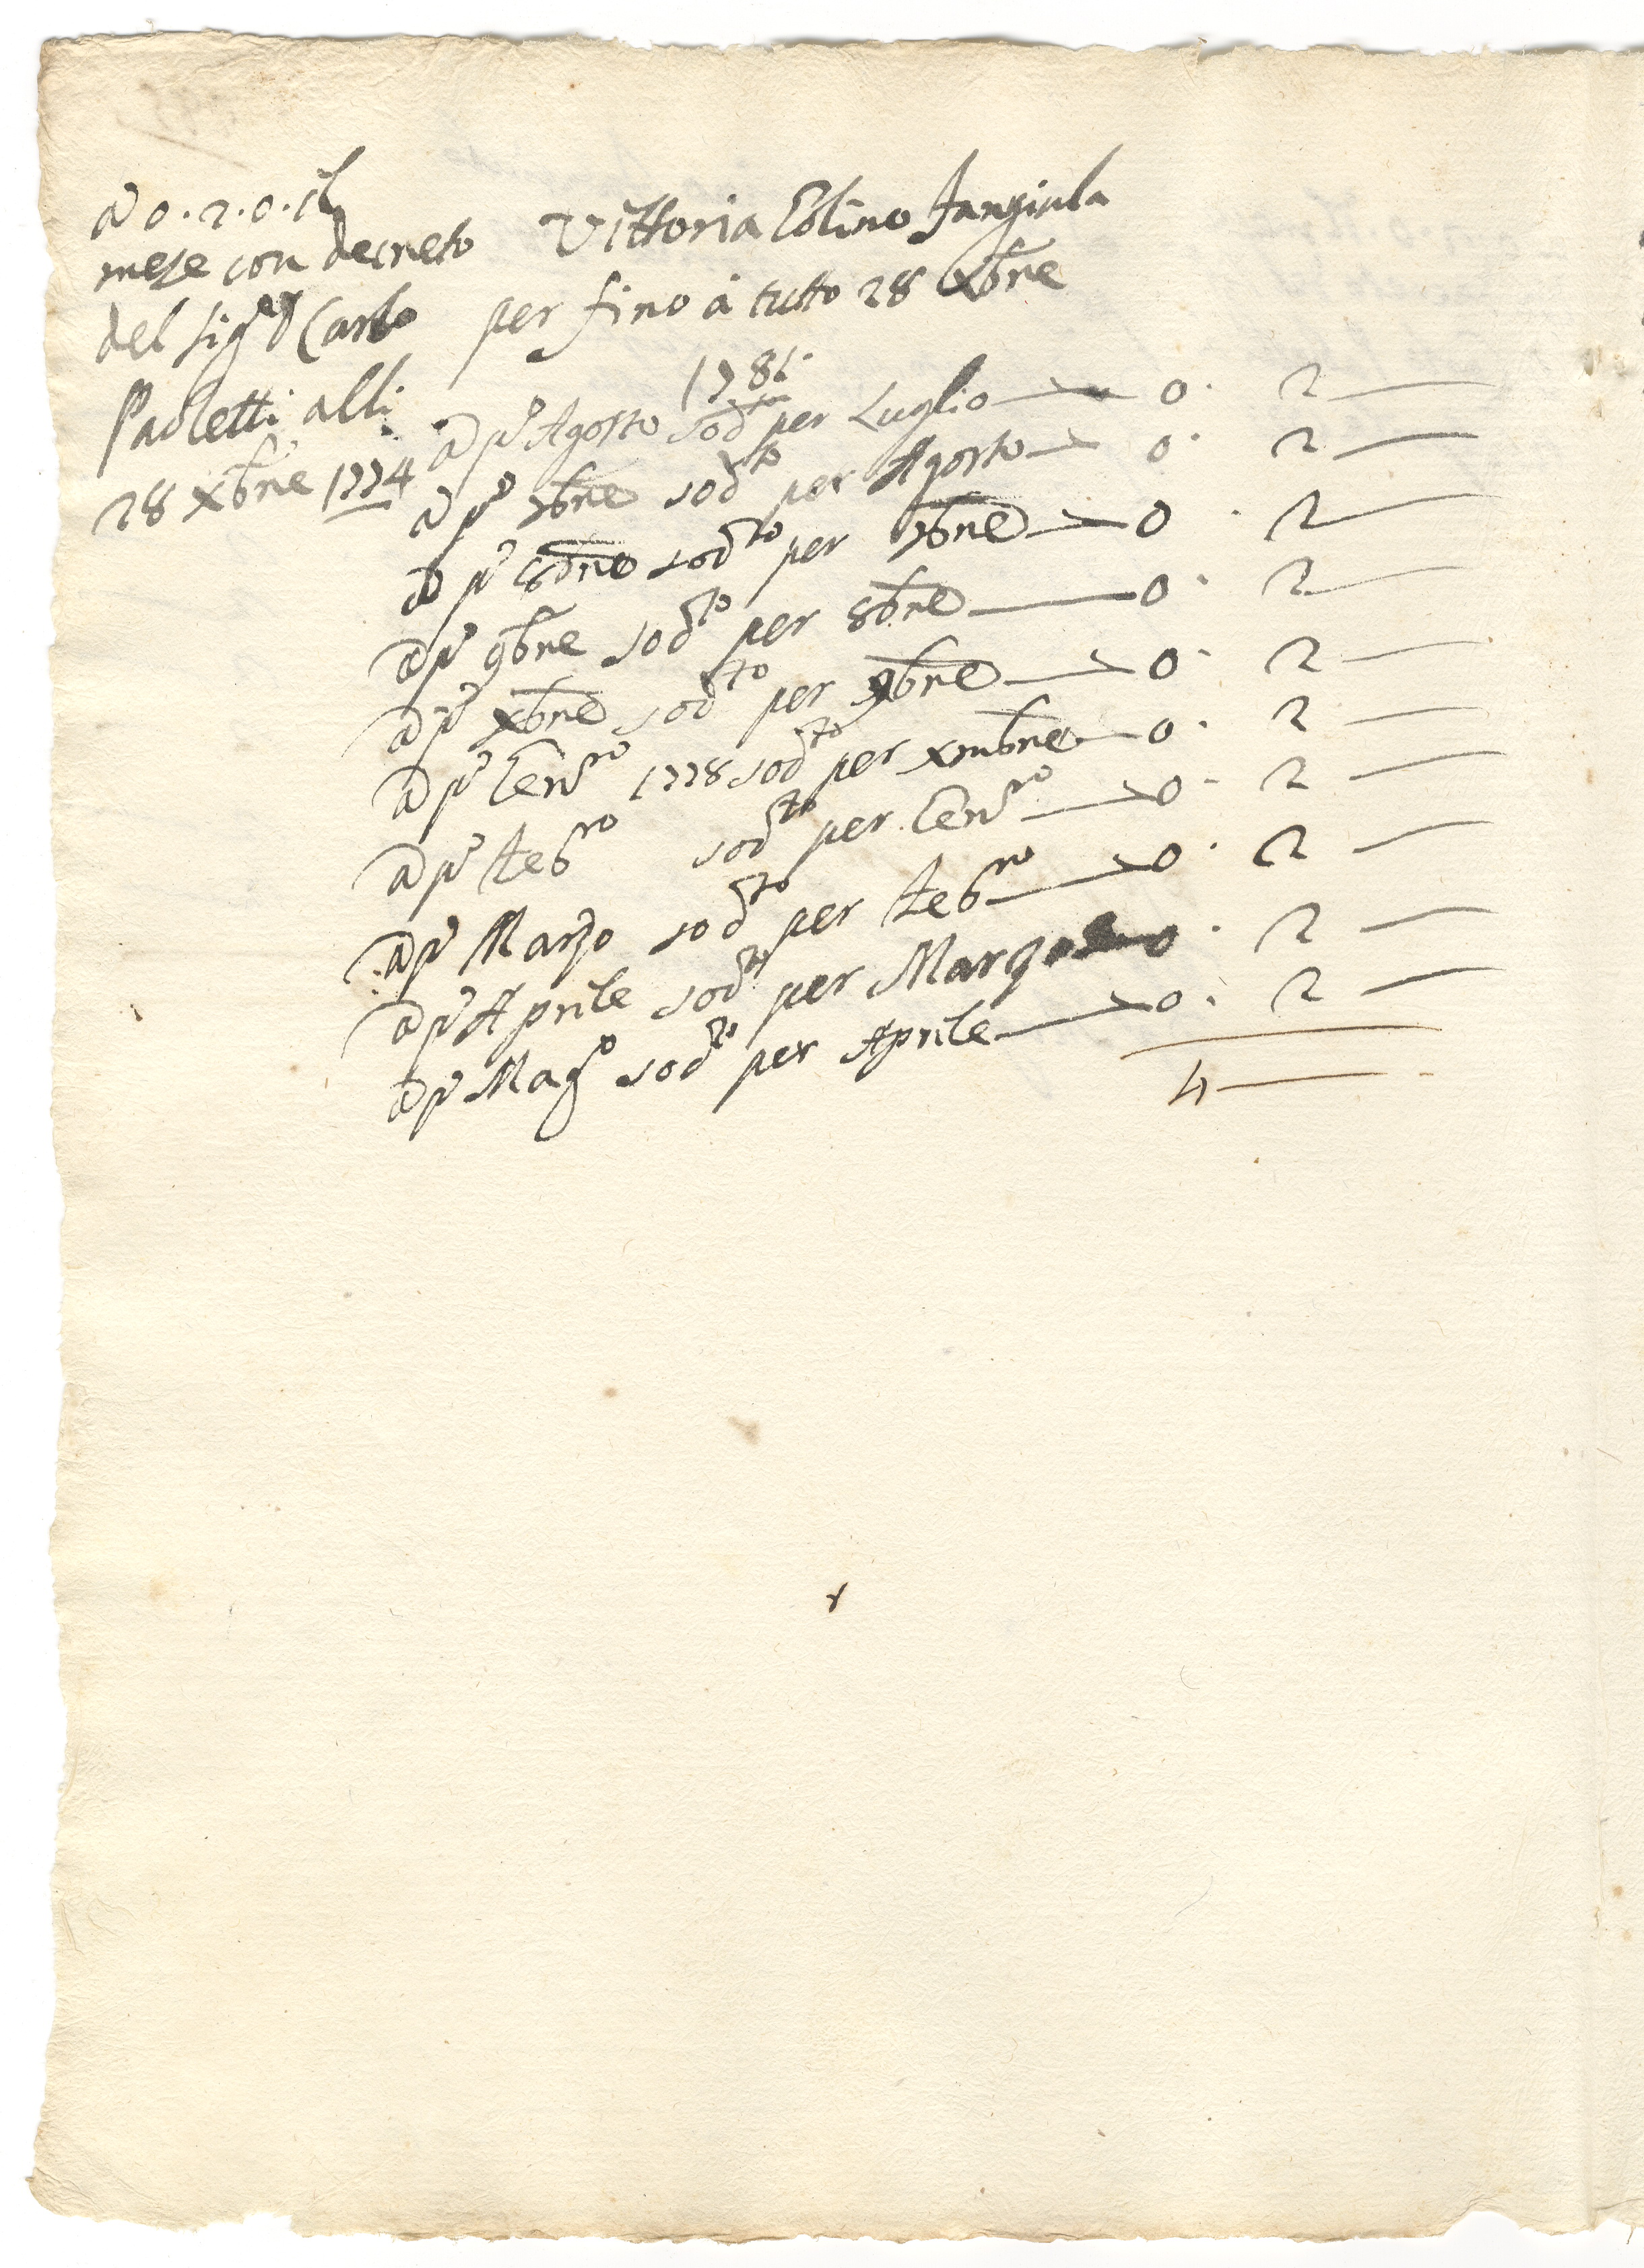 à 0.2.0. il
mese con decreto
del Sigr Carlo
Paoletti alli
28 Xbre 1774
Vittoria Colino
per fino à tutto 28 Xbre
1781
à pº Agosto sodto per Luglio 0. 2
à pº 7bre sodto per Agosto 0. 2
à pº 8bre sodto per 7bre 0. 2
à pº 9bre sodto per 8bre 0. 2
à pº Xbre sodto per 9bre 0. 2
à pº Genro 1778 sodto per Xmbre 0. 2
à pº Febro sodto per Genro 0. 2
à pº Marzo sodto per Febro 0. 2
à pº Aprile sodto per Marzo 0. 2
à pº Mago sodto per Aprile 0. 2
4